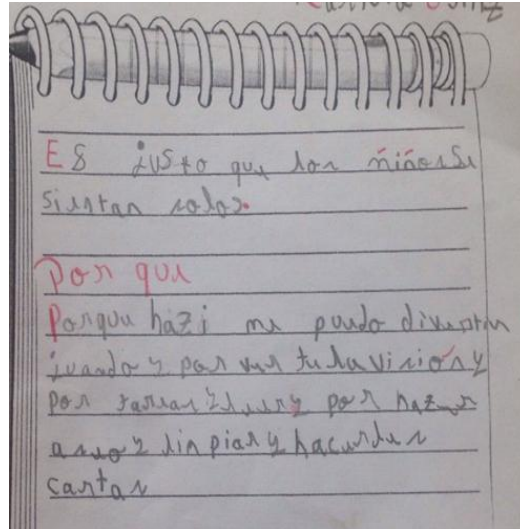 Es justo que los niños se
sientan solos.
Por que
Porque hazi me puedo divertir
juando y por ver televición y
por tariar y leer y por hazer
aseo y linpiar y hacerles
cartas